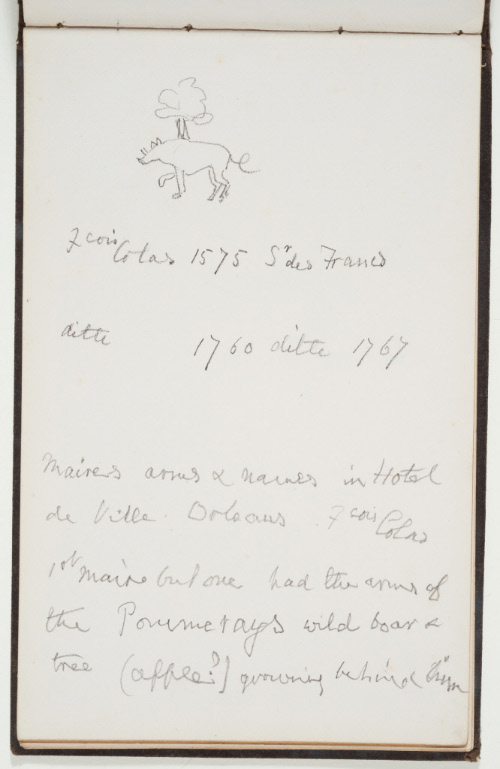 Fcois Colas 1575 Sr des Francs
ditte 1760 ditte 1767
Maires arms & names in Hotel
de Ville Orleans Fcois Colas
1st Maire but one had the arms of
the Pommerays wild boar &
tree (apple?) growing behind him